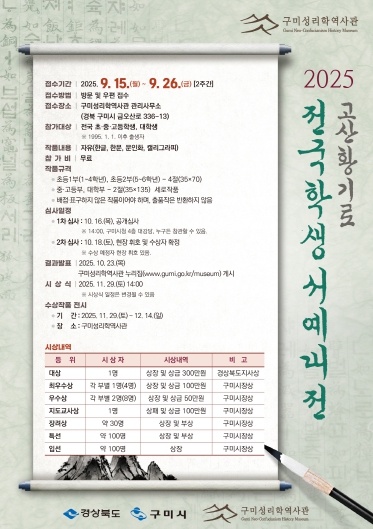 구미성리학역사관
Gumi Neo-Confucianism History Museum
2025
고산황기로
전국학생서예대전
접수기간 | 2025. 9. 15.(월) ~ 9. 26.(금) [2주간]
접수방법 | 방문 및 우편 접수
접수장소 | 구미성리학역사관 관리사무소
(경북 구미시 금오산로 336-13)
참가대상 | 전국 초·중·고등학생, 대학생
※ 1995. 1. 1. 이후 출생자
작품내용 | 자유(한글, 한문, 문인화, 캘리그라피)
참 가 비 | 무료
작품규격
초등1부(1~4학년), 초등2부(5~6학년) - 4절(35×70)
중·고등부, 대학부 - 2절(35×135) 세로작품
배접·표구하지 않은 작품이어야 하며, 출품작은 반환하지 않음
심사일정
1차 심사 : 10. 16.(목), 공개심사
※ 14:00, 구미시청 4층 대강당, 누구든 참관할 수 있음.
2차 심사 : 10. 18.(토), 현장 휘호 및 수상자 확정
※ 수상 예정자 현장 휘호 있음.
결과발표 | 2025. 10. 23.(목)
구미성리학역사관 누리집(www.gumi.go.kr/museum) 게시
시 상 식 | 2025. 11. 29.(토) 14:00
※ 시상식 일정은 변경될 수 있음
수상작품 전시
기 간 : 2025. 11. 29.(토) ~ 12. 14.(일)
장 소 : 구미성리학역사관
시상내역
등 위 시 상 자 시상내역 비 고
대상 1명 상장 및 상금 300만원 경상북도지사상
최우수상 각 부별 1명(4명) 상장 및 상금 100만원 구미시장상
우수상 각 부별 2명(8명) 상장 및 상금 50만원 구미시장상
지도교사상 1명 상패 및 상금 100만원 구미시장상
장려상 약 30명 상장 및 부상 구미시장상
특선 약 100명 상장 및 부상 구미시장상
입선 약 100명 상장 구미시장상
경상북도 구미시 구미성리학역사관
Gumi Neo-Confucianism History Museum